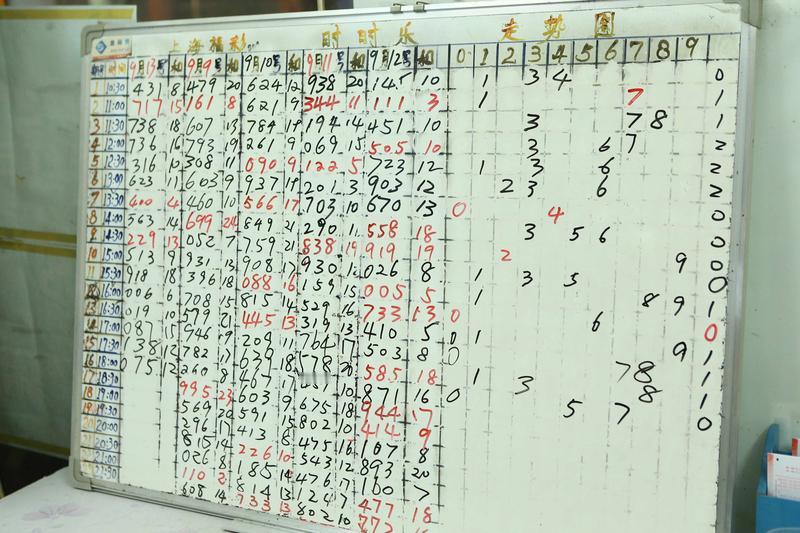 上海福彩 时时乐 走势图
期号 时间 9月13号 和 9月9号 和 9月10号 和 9月11号 和 9月12号 和 0 1 2 3 4 5 6 7 8 9
1 10:30 431 8 479 20 624 12 938 20 145 10 1 3 4 0
2 11:00 717 15 161 8 621 9 344 11 111 3 1 7 1
3 11:30 738 18 607 13 784 19 194 14 451 10 3 7 8 1
4 12:00 736 16 793 19 261 9 069 15 505 10 3 6 7 2
5 12:30 316 10 308 11 090 9 122 5 723 12 1 3 6 2
6 13:00 623 11 603 9 937 19 201 3 903 12 2 3 6 2
7 13:30 400 4 460 10 566 17 703 10 670 13 0 4 0
8 14:00 563 14 699 24 849 21 290 11 558 18 3 5 6 0
9 14:30 229 13 052 7 759 21 838 19 919 19 2 9 0
10 15:00 513 9 931 13 908 17 930 026 8 1 3 5 0
11 15:30 918 18 396 18 088 16 159 15 005 5 1 8 9 0
12 16:00 006 6 708 15 815 14 529 16 733 13 0 6 1
13 16:30 019 10 579 21 445 13 319 13 410 5 0 1 9 0
14 17:00 087 15 946 19 209 11 764 17 503 8 0 7 8 1
15 17:30 138 12 782 17 639 18 778 585 18 1 3 8 1
16 18:00 075 12 260 8 467 17 871 16 0 5 7 1
17 18:30 995 23 603 9 675 18 944 17 0
18 19:00 569 20 591 15 802 10 414 9
19 19:30 296 17 413 8 475 16 107 8
20 20:00 815 14 226 10 543 12 893 20
21 20:30 026 8 185 14 476 17 100
22 21:00 110 2 814 13 124 7 477 18
21:30 608 14 733 13 802 10 772